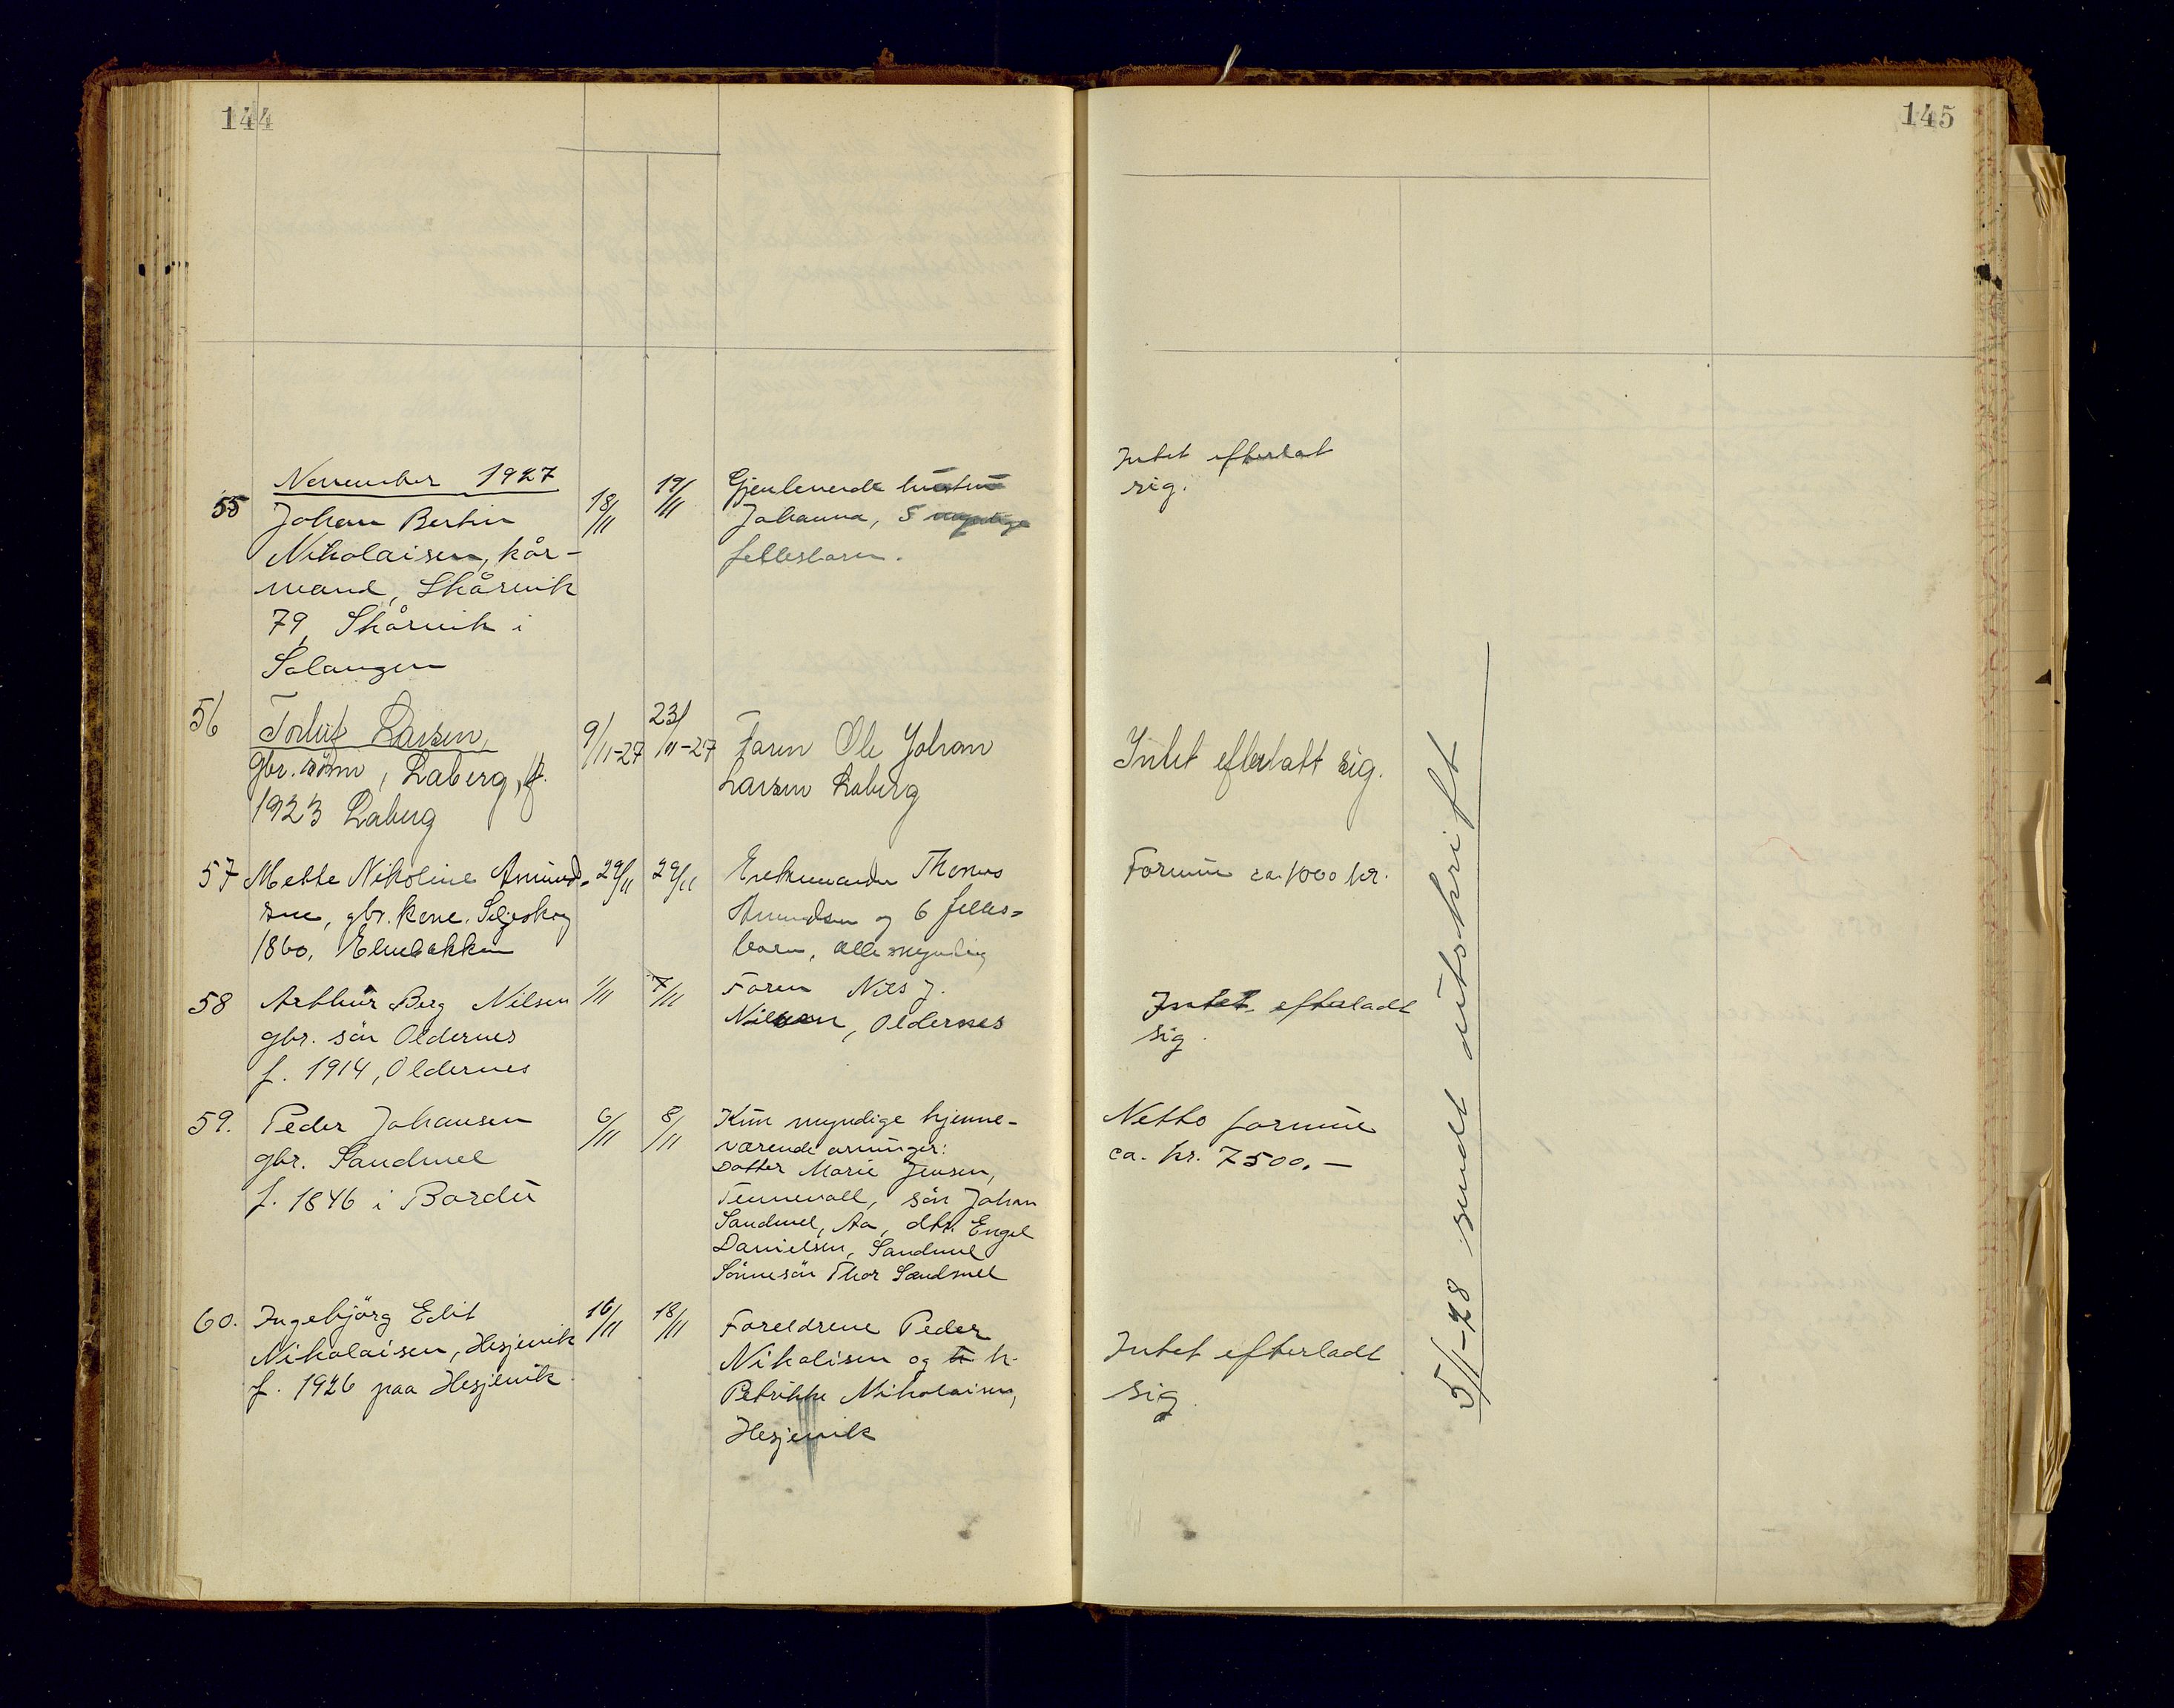 144
145
November 1927
55
Johan Bertin
Nikolaisen, kår-
mand, Skårvik
79, Skårvik i
Salangen
18/11
19/11
Gjenlevende hustru
Johanna, 5 myndige
fellesbarn.
Intet efterlat
sig.
56
Torleif Larsen,
gbr. sønn, Laberg, f.
1923 Laberg
9/11-27
23/11-27
Faren Ole Johan
Larsen Laberg
Intet efterlatt sig.
57
Mette Nikoline Amund-
sen, gbr. kone. Seljeskog
1860, Elvebakken
29/11
29/11
Enkemanden Thomas
Amundsen og 6 felles-
barn, alle myndig
Formue ca. 1000 kr.
58
Arthur Berg Nilsen
gbr. sön Oldernes
f. 1914, Oldernes
1/11
7/11
Faren Nils J.
Nilsen, Oldernes
Intet efterladt
sig.
59.
Peder Johansen
gbr. Sandmel
f. 1846 i Bardu
6/11
8/11
Kun myndige hjemme-
værende arvinger:
Datter Marie Jensen,
Tennevall, sön Johan
Sandmel, Aa, dtr. Engel
Danielsen, Sandmel
Sönnesön Thor Sandmel
Netto formue
ca. kr. 7500.-
60.
Ingebjörg Edit
Nikolaisen, Hesjevik
f. 1926 paa Hesjevik
16/11
18/11
Foreldrene Peder
Nikolisen og h.
Petrikke Nikolaisen,
Hesjevik
Intet efterladt
sig.
5/1-28 sendt utskrift